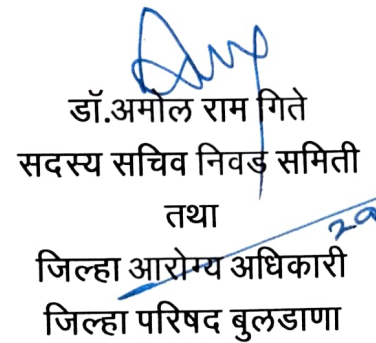 डॉ.अमोल राम गिते
सदस्य सचिव निवड समिती
तथा
जिल्हा आरोग्य अधिकारी
जिल्हा परिषद बुलडाणा